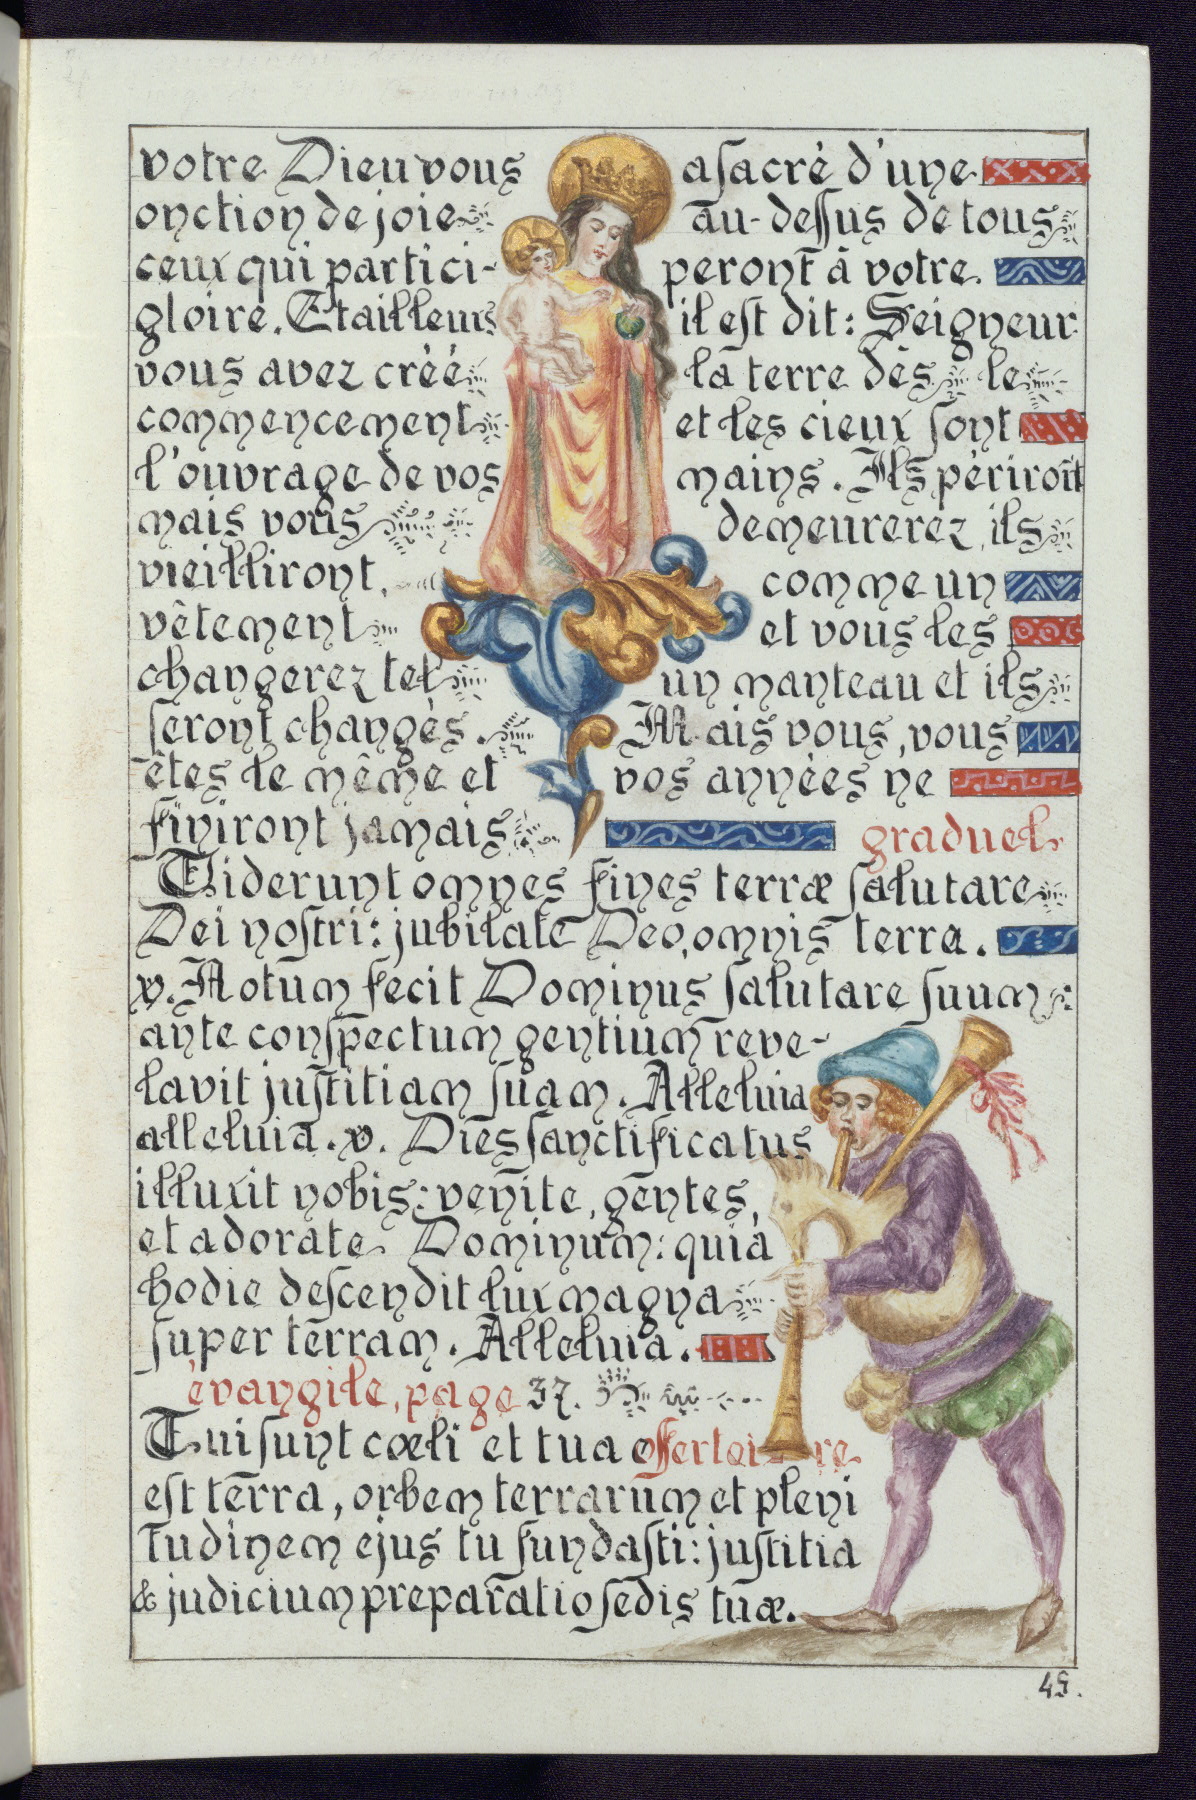 votre Dieu vous a sacré d'une
onction de joie au-dessus de tous
ceux qui partici-peront à votre.
gloire. Et ailleurs il est dit: Seigneur
vous avez créé la terre dès le
commencement et les cieux sont
l'ouvrage de vos mains. Ils périront
mais vous demeurerez, ils
vieilliront, comme un
vêtement et vous les
changerez tel un manteau et ils
seront changés. Mais vous, vous
êtes le même et vos années ne
finiront jamais graduel
Viderunt omnes fines terræ salutare
Dei nostri: jubilate Deo, omnis terra.
v. Notum fecit Dominus salutare suum:
ante conspectum gentium reve-
lavit justitiam suam. Alleluia
alleluia. v. Dies sanctificatus
illuxit nobis: venite, gentes,
et adorate Dominum: quia
hodie descendit lux magna
super terram. Alleluia.
évangile, page 37.
Tui sunt cœli et tua offertoire
est terra, orbem terrarum et pleni
tudinem ejus tu fundasti: justitia
& judicium preparatio sedis tuæ.
45.